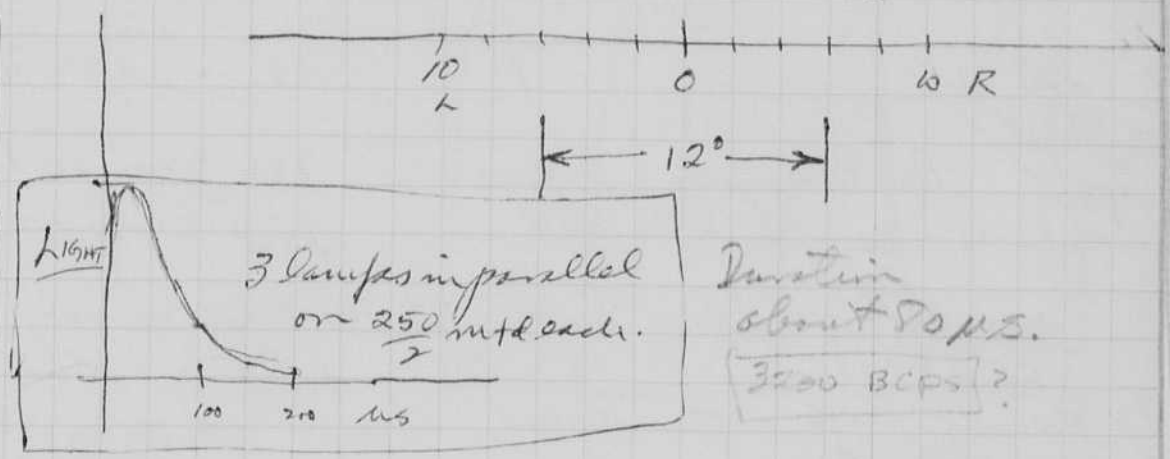 10 0 10 R
L
12°
LIGHT
3 lamps in parallel
on 250/2 mfd each.
100 200 μs
Duration
about 80 μs.
3200 BCPS ?